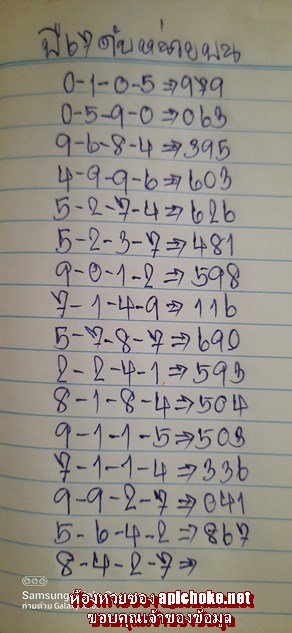 ปี67ดับหน่วยบน
0-1-0-5⇒979
0-5-9-0⇒063
9-6-8-4⇒395
4-9-9-6⇒603
5-2-7-4⇒626
5-2-3-7⇒481
9-0-1-2⇒598
7-1-4-9⇒116
5-7-8-7⇒690
2-2-4-1⇒593
8-1-8-4⇒504
9-1-1-5⇒503
7-1-1-4⇒336
9-9-2-7⇒041
5-6-4-2⇒867
8-4-2-7⇒
Samsung
ถ่ายด้วย Gala
ห้องหวยซอง apichoke.net
ขอบคุณเจ้าของข้อมูล